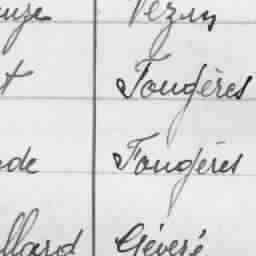 Vezin
t Fougères
de Fougères
llard Gévezé